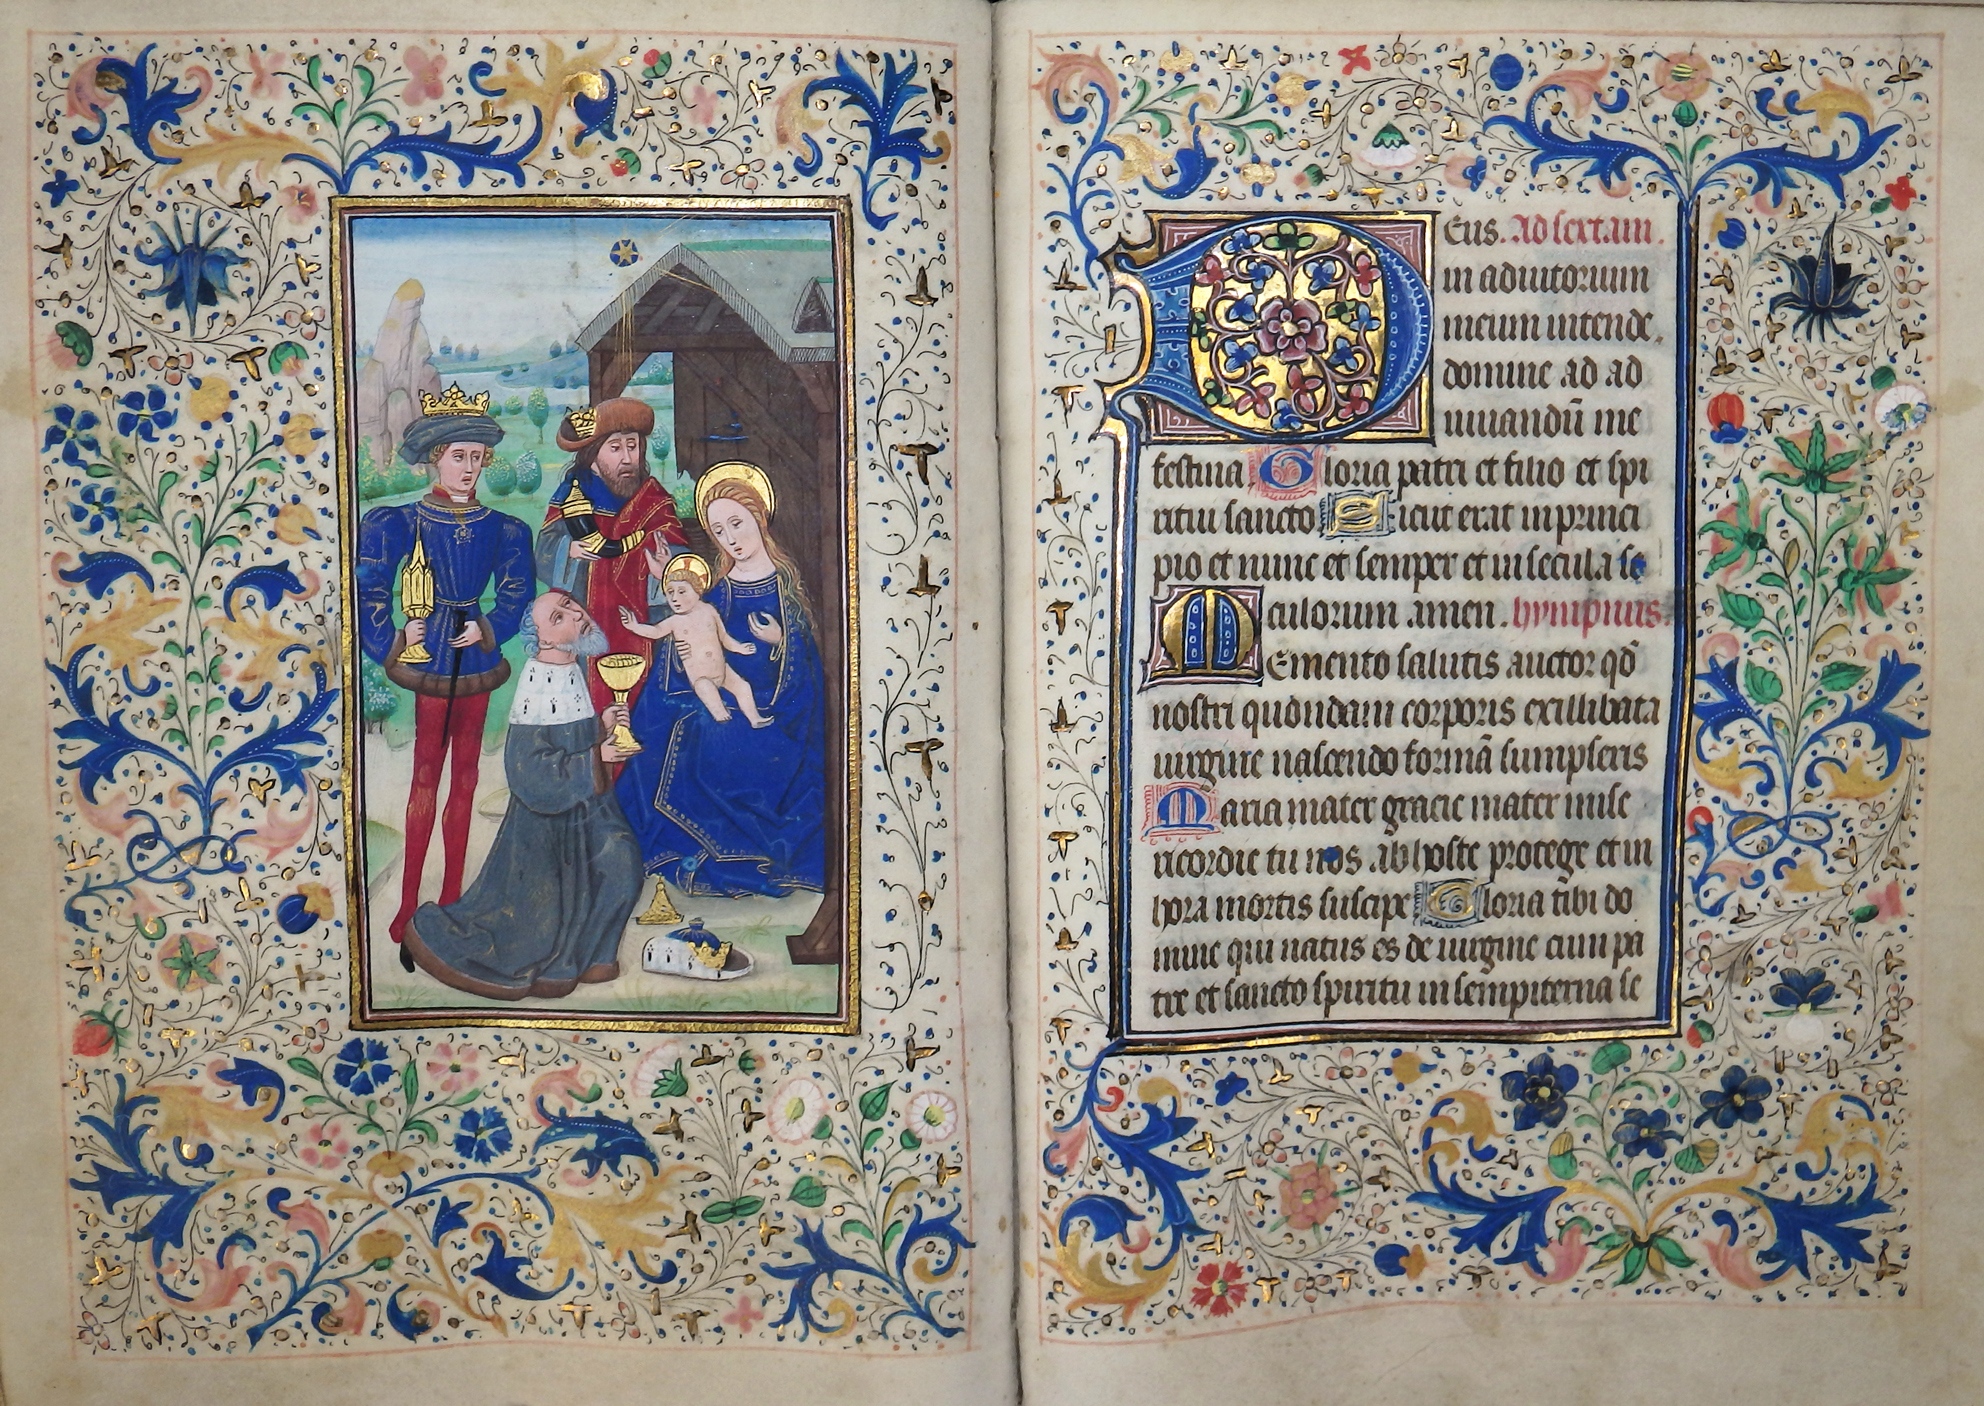 Deus. Ad sextam.
in adiutorium
meum intende.
domine ad ad
iuuandū me
festina Gloria patri et filio et spi
ritui sancto Sicut erat in princi
pio et nunc et semper et in secula se
culorum amen. hympnus.
Memento salutis auctor qd̄
nostri quondam corporis ex illibata
uirgine nascendo formā sumpseris
Maria mater gracie mater mise
ricordie tu nos ab hoste protege et in
hora mortis suscipe Gloria tibi do
mine qui natus es de uirgine cum pa
tre et sancto spiritu in sempiterna se